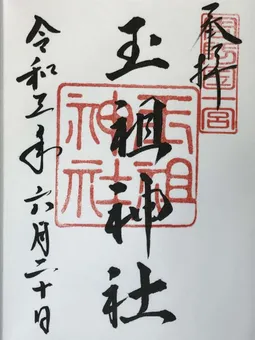 奉拝
周防国一宮
玉祖神社
玉祖神社
令和三年六月二十日